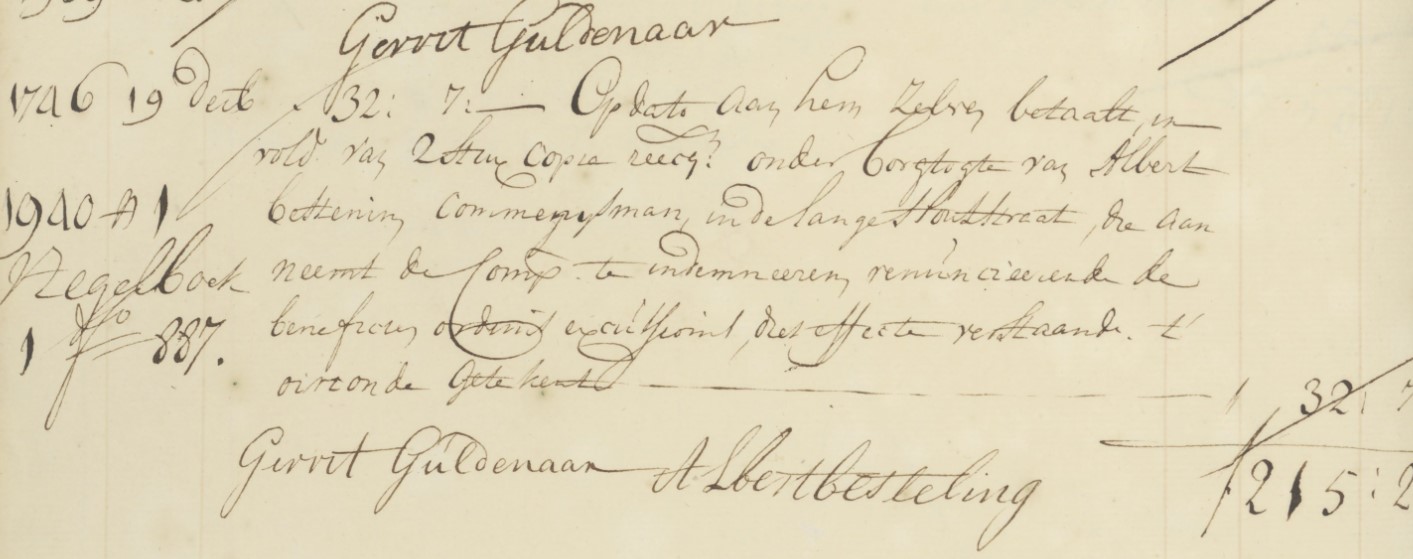 Gerrit Guldenaar
1746 19 decb 32: 7:— Op dato aan hem zelven betaalt, in
vold. van 2 stux copie reecq? onder borgtogte van Albert
1940 A 1 bestening commenysman, in de lange Houtstraat, die aan
Regelboek neemt de Comp. te indemneeren, renuncieerende de
benefician ordinis excussionis, dies effecte verstaande. t'
1 ffo 887.
oirconde getekent 32: 7
Gerrit Guldenaar Albert besteling
215: 2